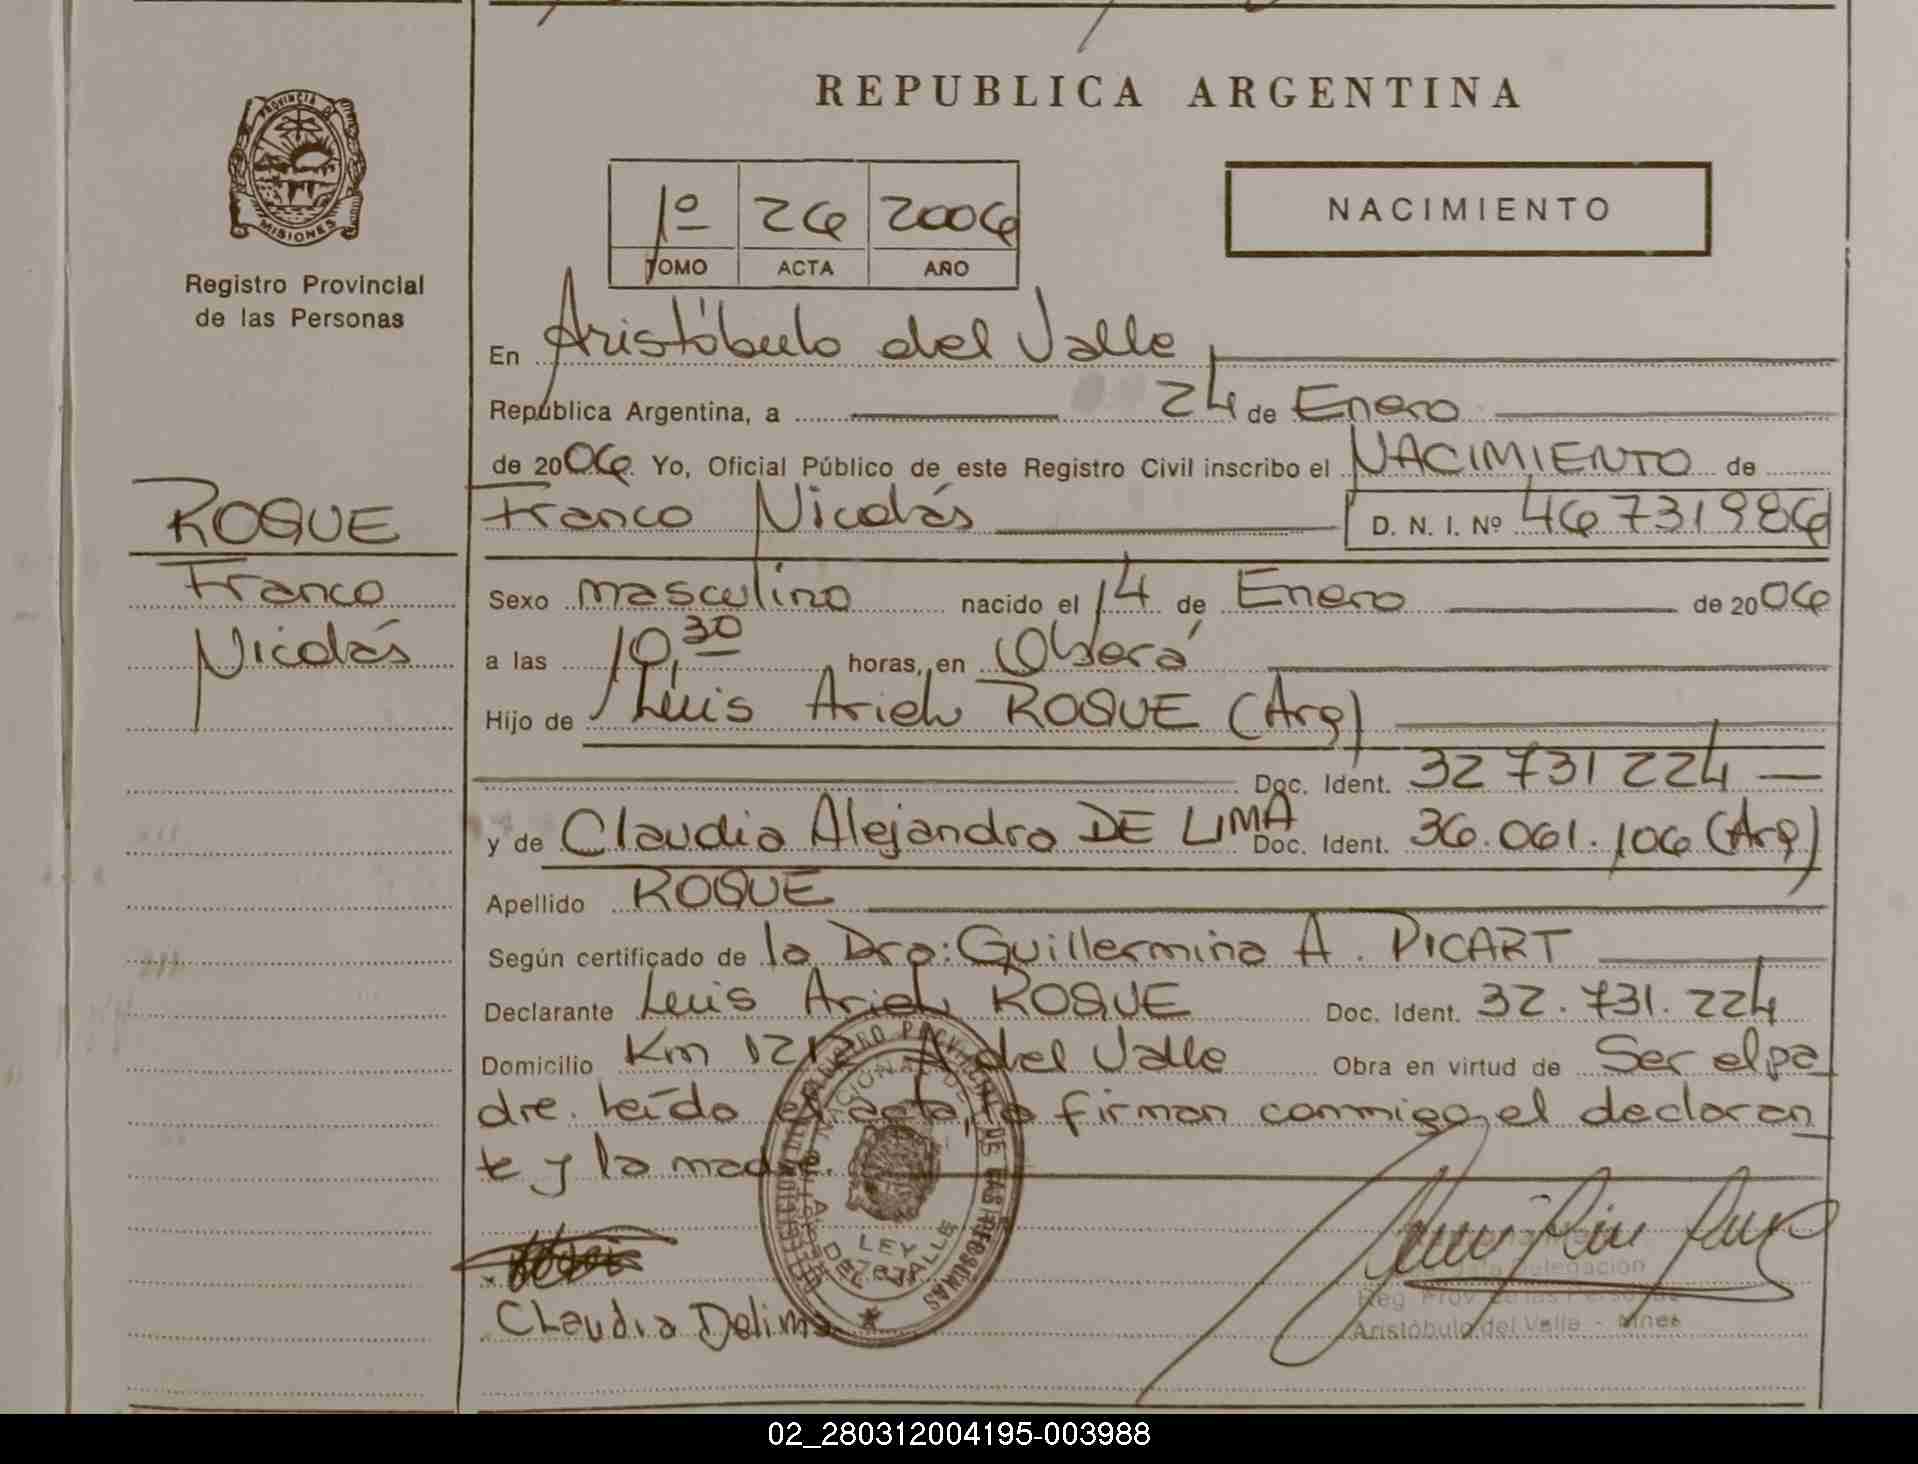 REPUBLICA ARGENTINA
PROVINCIA DE MISIONES
Registro Provincial
de las Personas
1º 26 2006
TOMO ACTA AÑO
NACIMIENTO
En Aristóbulo del Valle
República Argentina, a 24 de Enero
de 2006 Yo, Oficial Público de este Registro Civil inscribo el NACIMIENTO de
ROQUE
Franco
Nicolás
Franco Nicolás D. N. I. Nº 46731986
Sexo masculino nacido el 14 de Enero de 2006
a las 10,30 horas, en Oberá
Hijo de Luis Ariel ROQUE (Arg)
Doc. Ident. 32 731 224
y de Claudia Alejandra DE LIMA Doc. Ident. 36.061.106 (Arg)
Apellido ROQUE
Según certificado de la Dra: Guillermina A. PICART
Declarante Luis Ariel ROQUE Doc. Ident. 32.731.224
Domicilio Km 1212 A del Valle Obra en virtud de Ser el pa
dre. Leído el acta, la firman conmigo, el declaran
te y la madre.
LEY
DEL VALLE
Claudia Delima
Delegación
Reg Prov de las Personas
Aristóbulo del Valle - Mnes
02_280312004195-003988